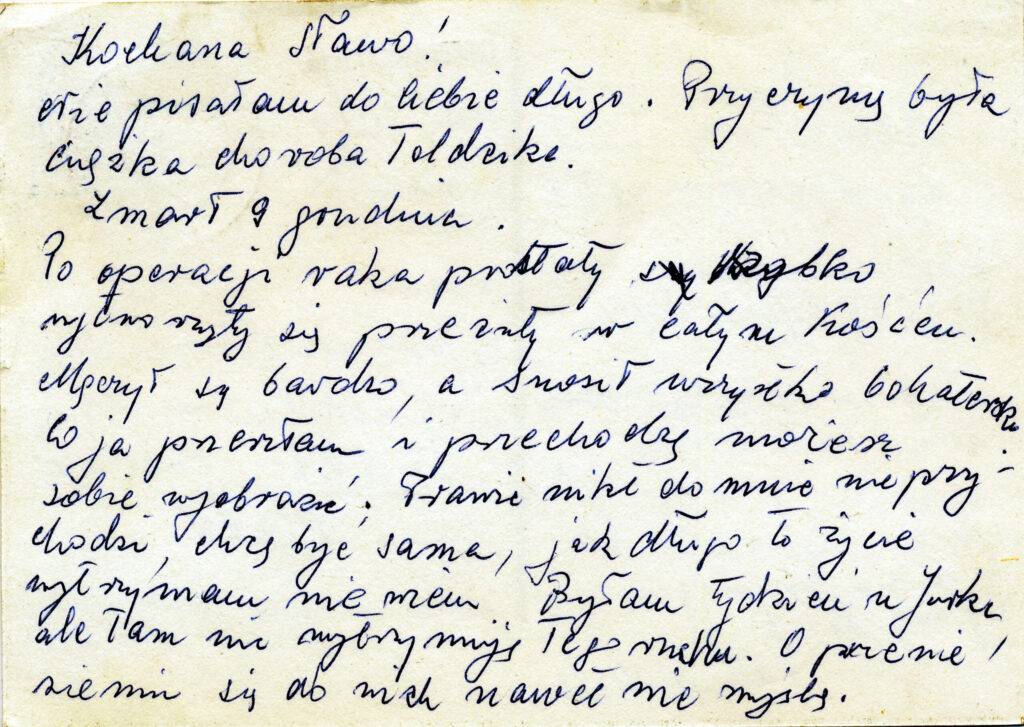 Kochana Sławo!
Nie pisałam do Ciebie długo. Przyczyną była
ciężka choroba Toldzika.
Zmarł 9 grudnia.
Po operacji raka prostaty szybko
się przerzuty w całym kośćcu.
Męczył się bardzo, a znosił wszystko bohatersko.
Co ja przeszłam i przechodzę możesz
sobie wyobrazić. Prawie nikt do mnie nie przy-
chodzi, chcę być sama, jak długo to życie
wytrzymam nie wiem Byłam tydzień u Jurka
ale tam nie wytrzymuję tego ruchu. O przenie-
sieniu się do nich nawet nie myślę.